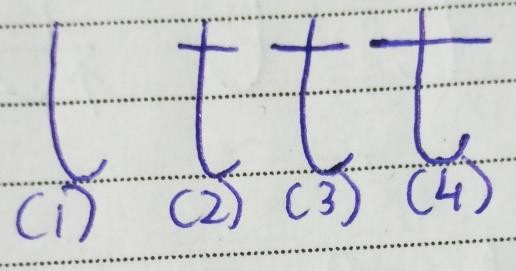 l t t t
(1) (2) (3) (4)